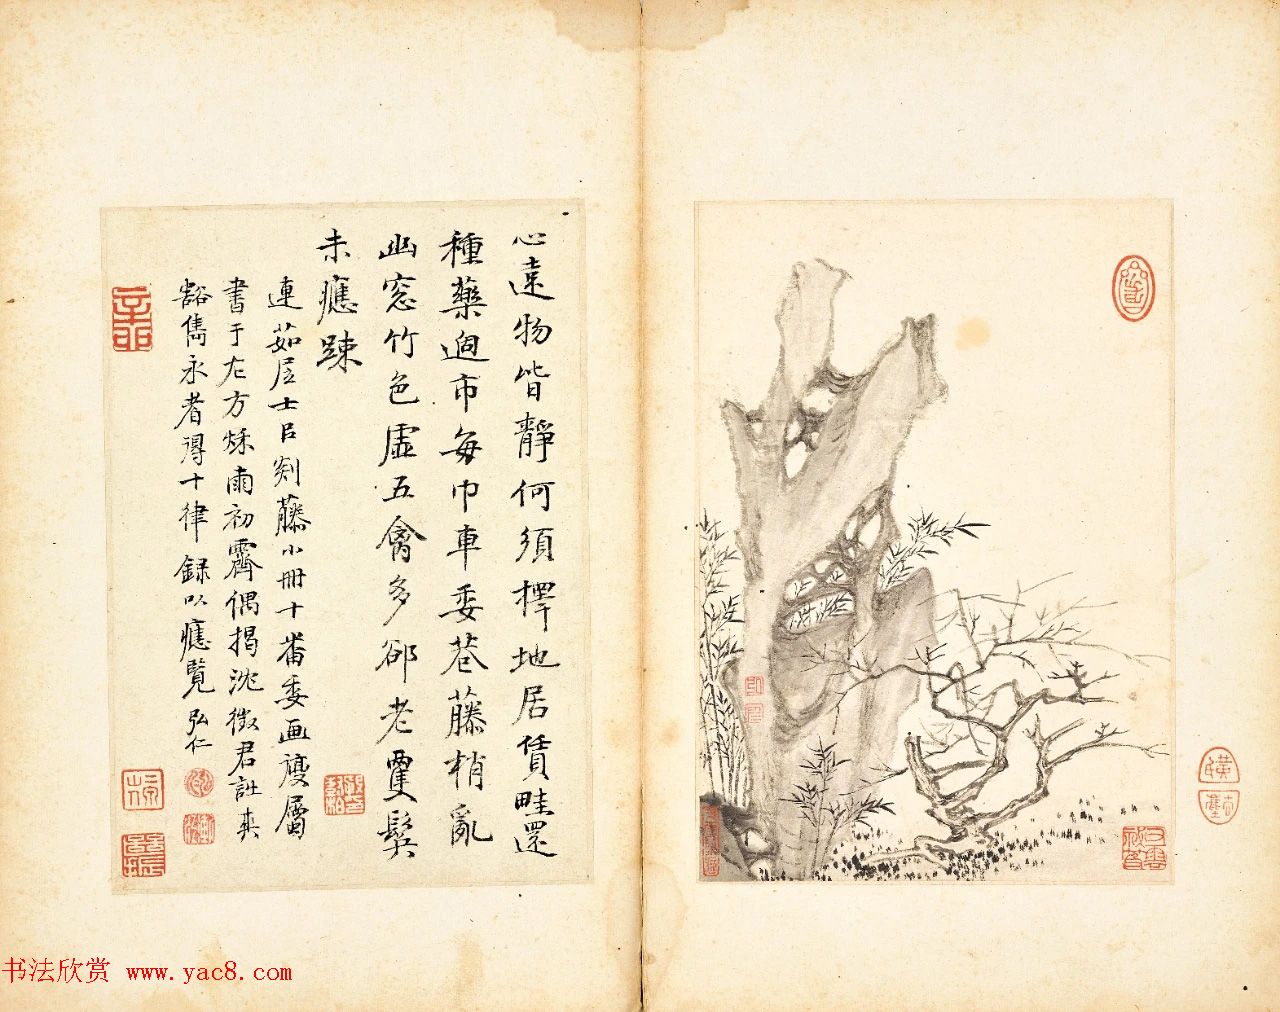 心遠物皆靜何須擇地居賃畦還
種藥過市每巾車委巷藤梢亂
幽窓竹色虛五禽多郤老霣髮
未應踈
連茹居士㠯剡藤小冊十番委畫竝屬
書于左方烁雨初霽偶揭沈徵君詿
豁雋永者得十律錄以應覽弘仁
书法欣赏 www.yac8.com